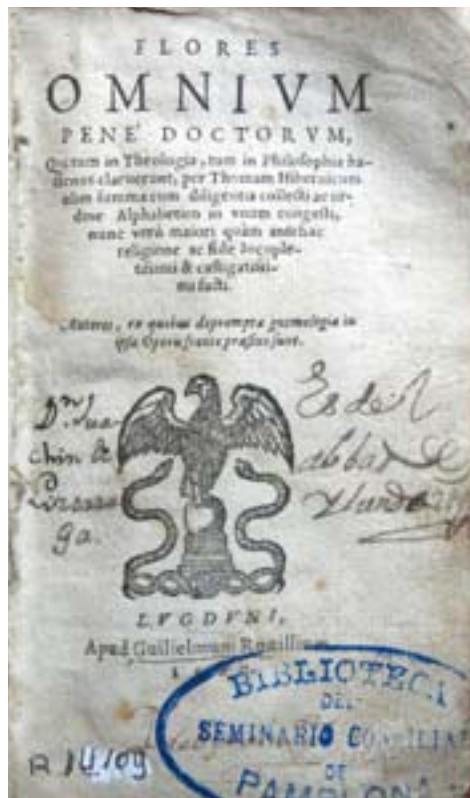 FLORES
OMNIVM
PENE' DOCTORVM,
Qui tum in Theologia, tum in Philosophia ha-
ctenus claruerunt, per Thomam Hibernicum
olim summa cum diligentia collecti ac or-
dine Alphabetico in unum congesti,
nunc verò maiori quàm antehac
religione ac fide locuple-
&
facti.
Autores, ex quibus deprompta gnomologia in
ipso Operis
Dn. Jua
chin de
ga.
Es del
abbad de
LVGDVNI,
Apud Guilielmum Rouillium
BIBLIOTECA
DEL
SEMINARIO CONCILIAR
DE
PAMPLONA
R 14/109